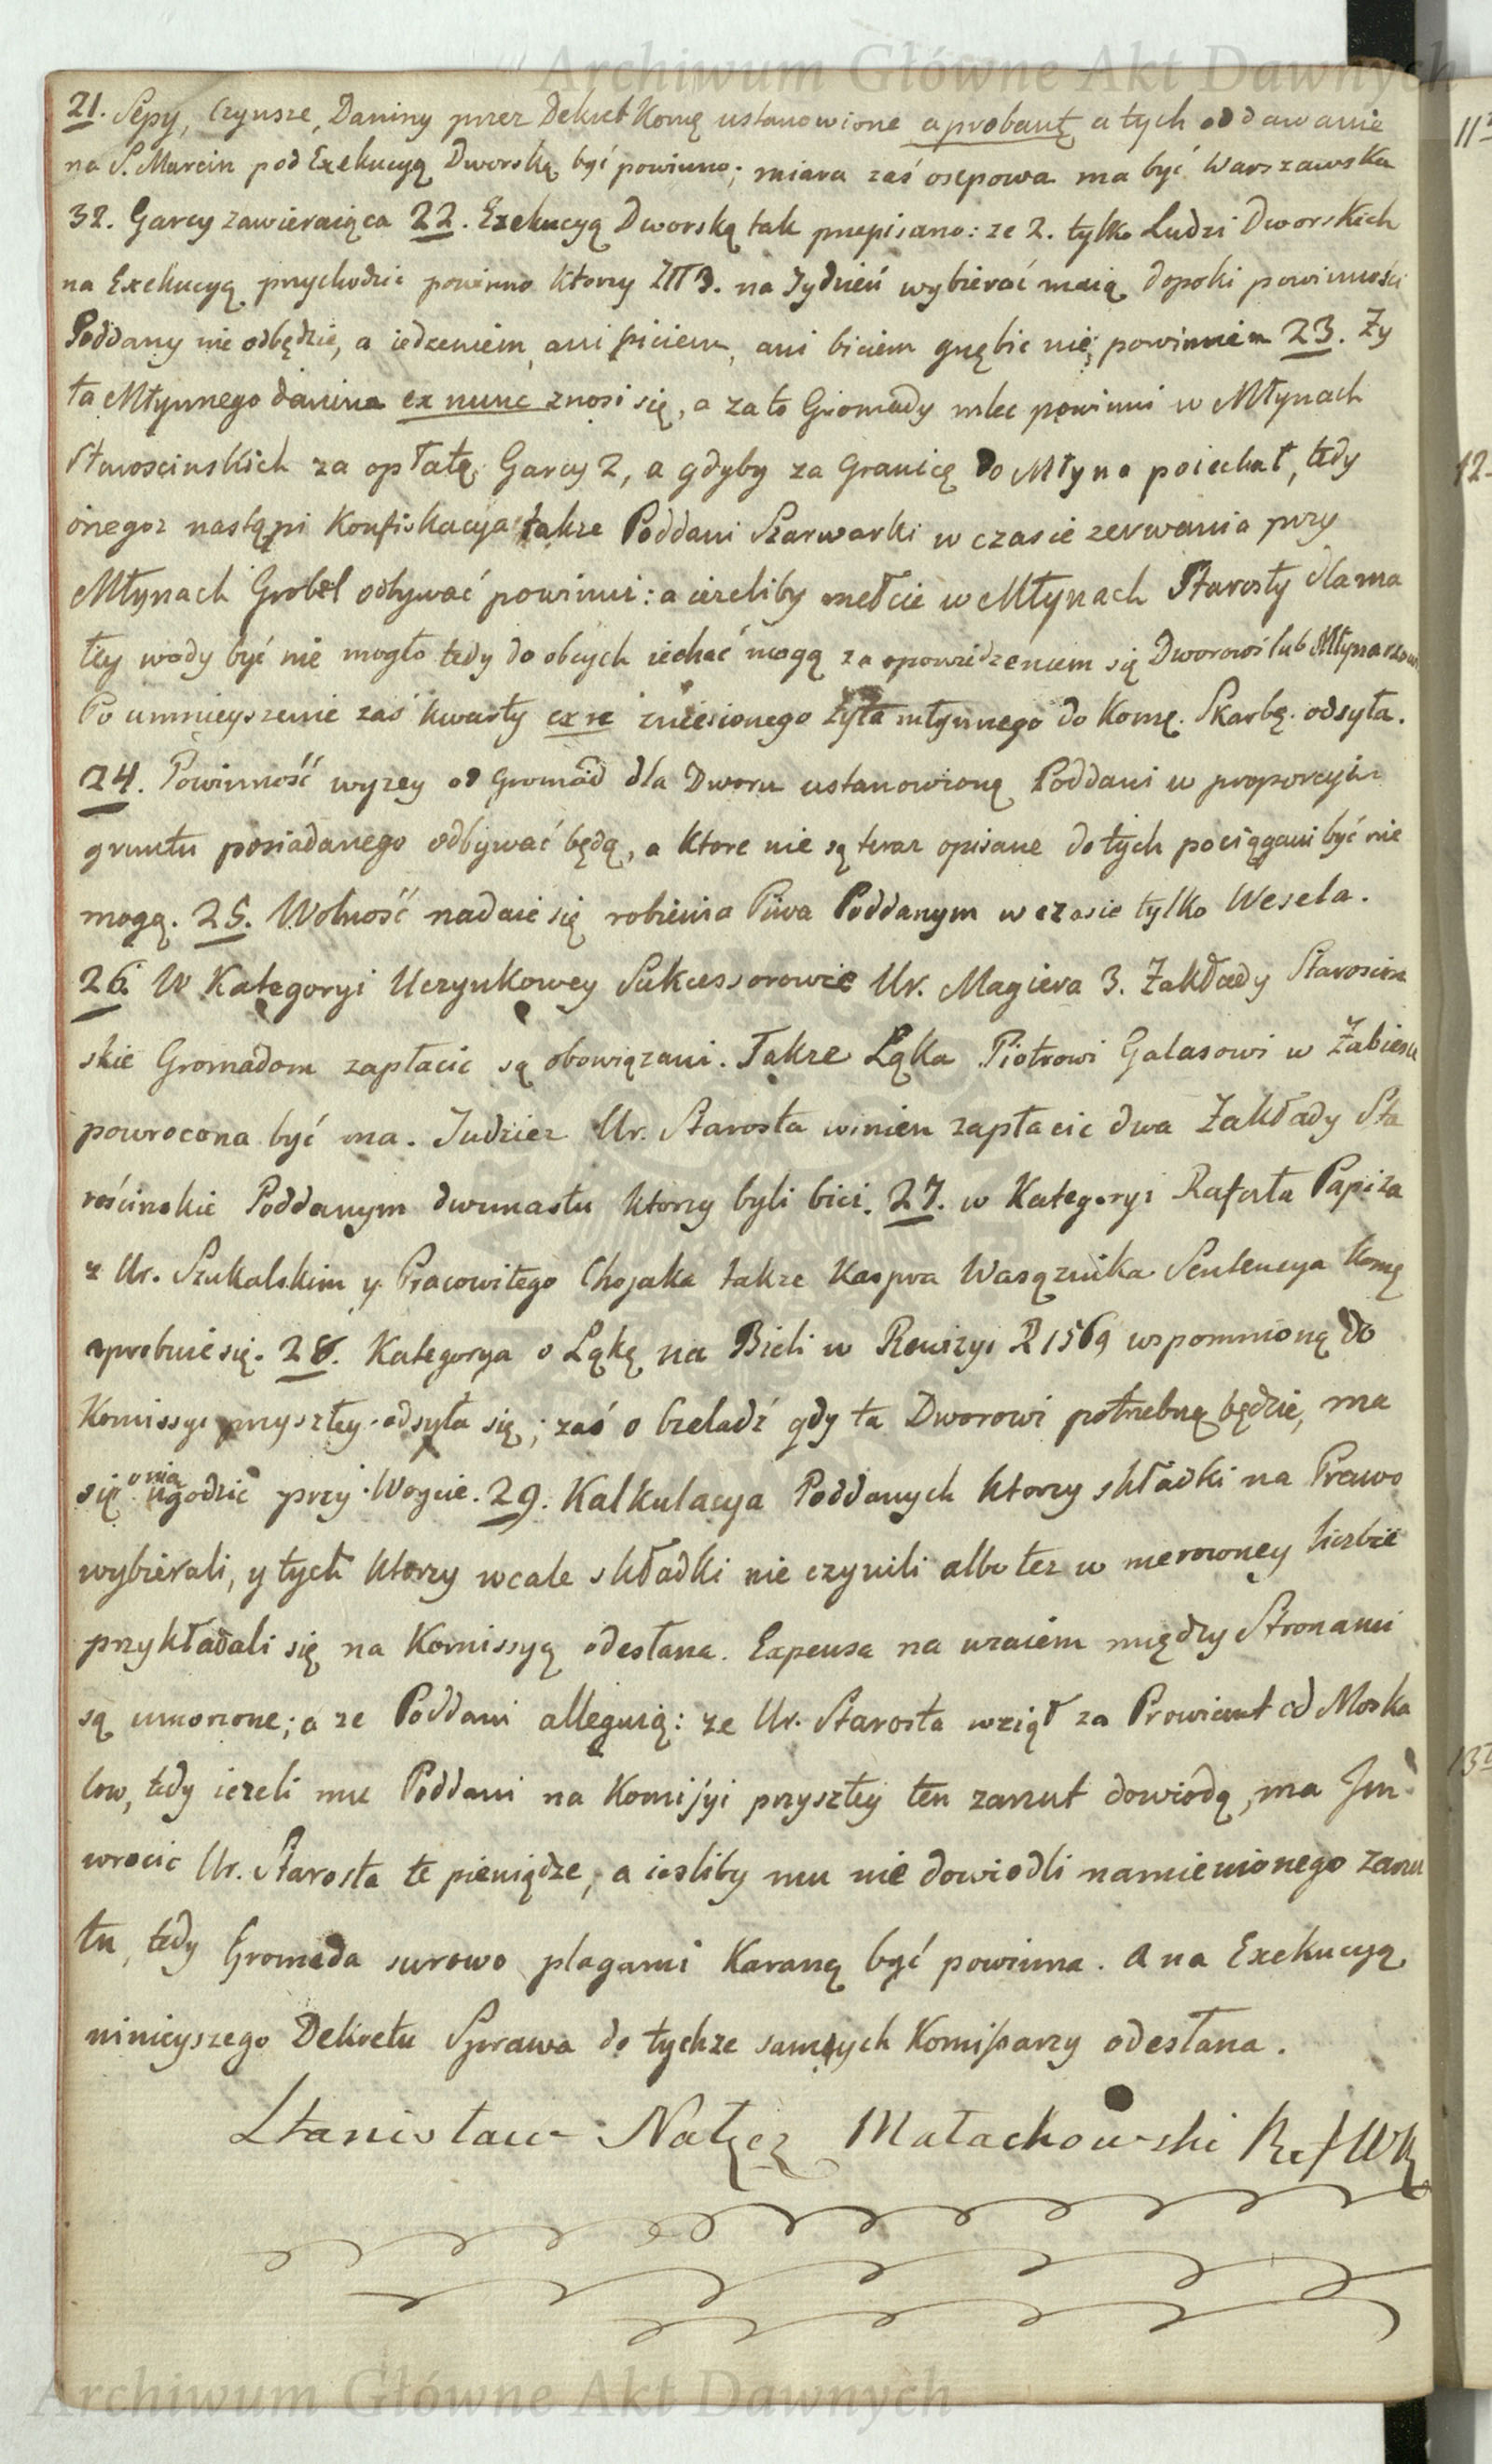 Archiwum Główne Akt Dawnych
21. Sepy, Czynsze, Daniny przez Dekret Komę ustanowione aprobantę a tych oddawanie
na S. Marcin pod Exekucyą Dworską być powinno; miara zaś osepowa ma być Warszawska
32. Garcy zawieraiąca 22. Exekucyą Dworską tak przepisano: ze 2. tylko Ludzi Dworskich
na Exekucyą przychodzic powinno ktorzy na Tydzień wybierać maią dopoki powinności
Poddany nie odbędzie, a iedzeniem, ani piciem, ani biciem gnębic nie powinnien 23. Zy
ta Młynnego danina ex nunc znosi się, a zato Gromady mlec powinni w Młynach
Starosciuskich za opłatę Garcy 2, a gdyby za Granicę do Młyna poiechał, tedy
onegoz nastąpi Konfiskacya takze Poddani Szarwarki w czasie zerwania przy
Młynach Grobel odbywać powinni: a iezeliby mełcie w Młynach Starosty dla ma
łey wody być nie mogło tedy do obcych iechać mogą za opowiedzeniem się Dworowi lub Młynarzowi
Po umnieyszenie zaś kwarty ex re zniesionego żyta młynnego do Komę. Skarbę. odsyła.
24. Powinność wyzey od Gromad dla Dworu ustanowioną Poddani w proporcyią
gruntu posiadanego odbywać będą, a ktore nie są teraz opisane do tych pociągani być nie
mogą. 25. Wolność nadaie się robienia Piwa Poddanym w czasie tylko Wesela.
26. W Kategoryi Uczynkowey Sukcessorowie Ur. Magiera 3. Zakłady Starościn
skie Gromadom zapłacic są obowiązani. Takze Ląka Piotrowi Galasowi w Żabieńcu
powrocona być ma. Tudziez Ur. Starosta winien zapłacic dwa Zakłady Sta
rościnskie Poddanym dwunastu ktorzy byli bici. 27. w Kategoryi Rafała Papiza
z Ur. Szukalskim y Pracowitego Chojaka takze Kaspra Wasąznika Sentencya Komę
aprobuie się. 28. Kategorya o Ląkę na Bieli w Rewizyi R 1569 wspomnioną do
Komissyi przyszłey odsyła się; zaś o Czeladź gdy ta Dworowi potrzebną będzie, ma
się o nią ugodzic przy Woycie. 29. Kalkulacya Poddanych ktorzy składki na Prawo
wybierali, y tych ktorzy wcale składki nie czynili albo tez w nierowney liczbie
przykładali się na Komissyą odesłana. Expensa na wzaiem między Stronami
są umorzone; a ze Poddani alleguią: ze Ur. Starosta wziął za Prowiant od Moska
low, tedy iezeli mu Poddani na Komissyi przyszłey ten zarzut dowiodą, ma Im
wrocic Ur. Starosta te pieniądze, a iesliby mu nie dowiodli namienionego zarzu
tu, tedy Gromada surowo plagami Karaną być powinna. A na Exekucyą
ninieyszego Dekretu Sprawa do tychze samych Komissarzy odesłana.
Stanisław Nałęcz Małachowski Ref WK
Archiwum Główne Akt Dawnych
11
12
13